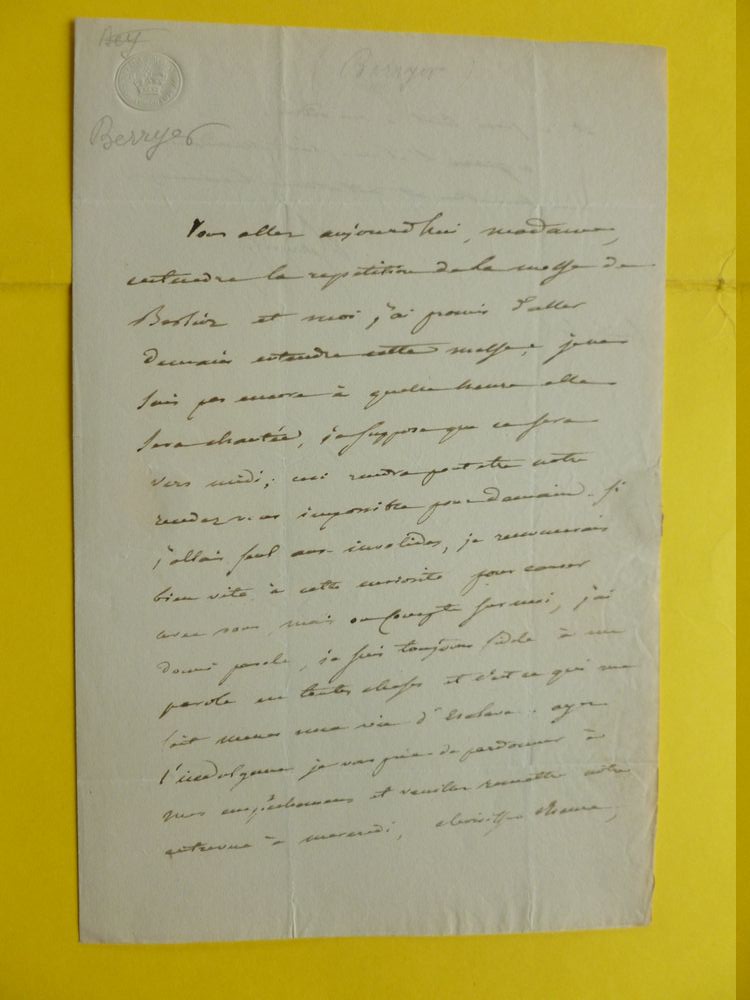 Aey
(Berryer)
Berryer
Vous allez aujourd'hui, madame,
entendre la repetition de la messe de
Berlioz et moi j'ai promis d'aller
Demain entendre cette messe; je ne
sais pas encore à quelle heure elle
sera chantée, je suppose que ce sera
vers midi; ceci rendra peut etre notre
rendez vous impossible pour demain. si
j'allais seul aux invalides, je renoncerais
bien vite à cette curiosité pour causer
avec vous, mais on compte sur moi, j'ai
donné parole, je suis toujours fidele à ma
parole en toutes choses et c'est ce qui me
fait mener une vie d'Esclave. ayez
l'indulgence je vous prie de pardonner à
mes empêchemens et veuillez remettre notre
entrevue à mercredi, choisissez l'heure,